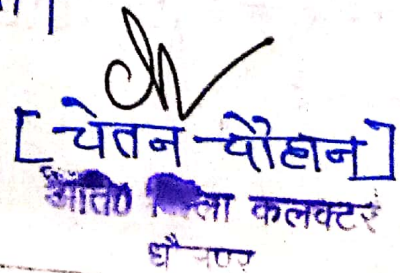 [चेतन चौहान]
अति० जिला कलक्टर